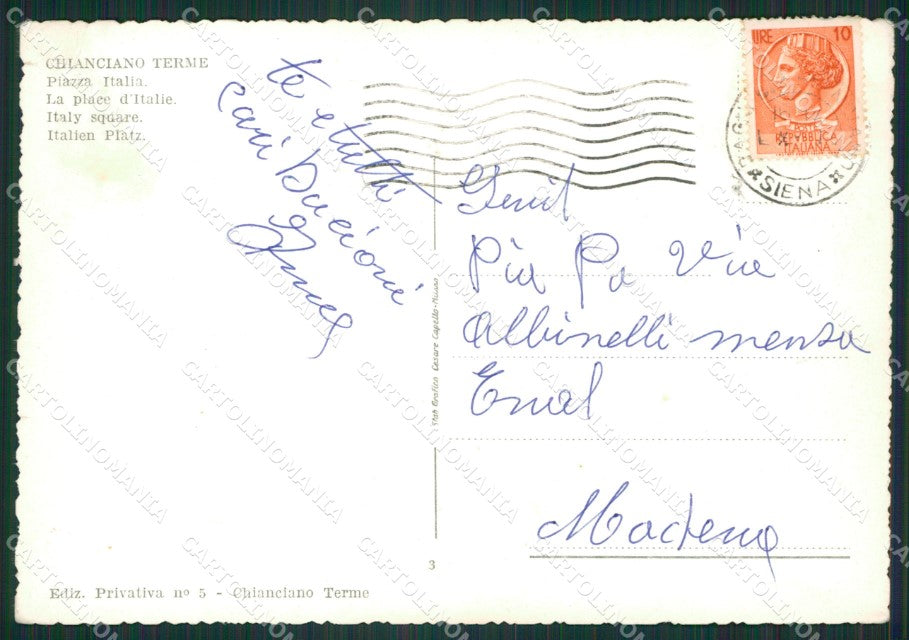 CHIANCIANO TERME
Piazza Italia.
La place d'Italie.
Italy square.
Italien Platz.
te e tutti
cari bacioni
LIRE 10
POSTE
REPUBBLICA
ITALIANA
SIENA
Genil
Pia Po Via
Albinelli mensa
Enal
Modena
Stab. Grafico Cesare Capello - Milano
3
Ediz. Privativa nº 5 - Chianciano Terme
CARTOLINOMANIA